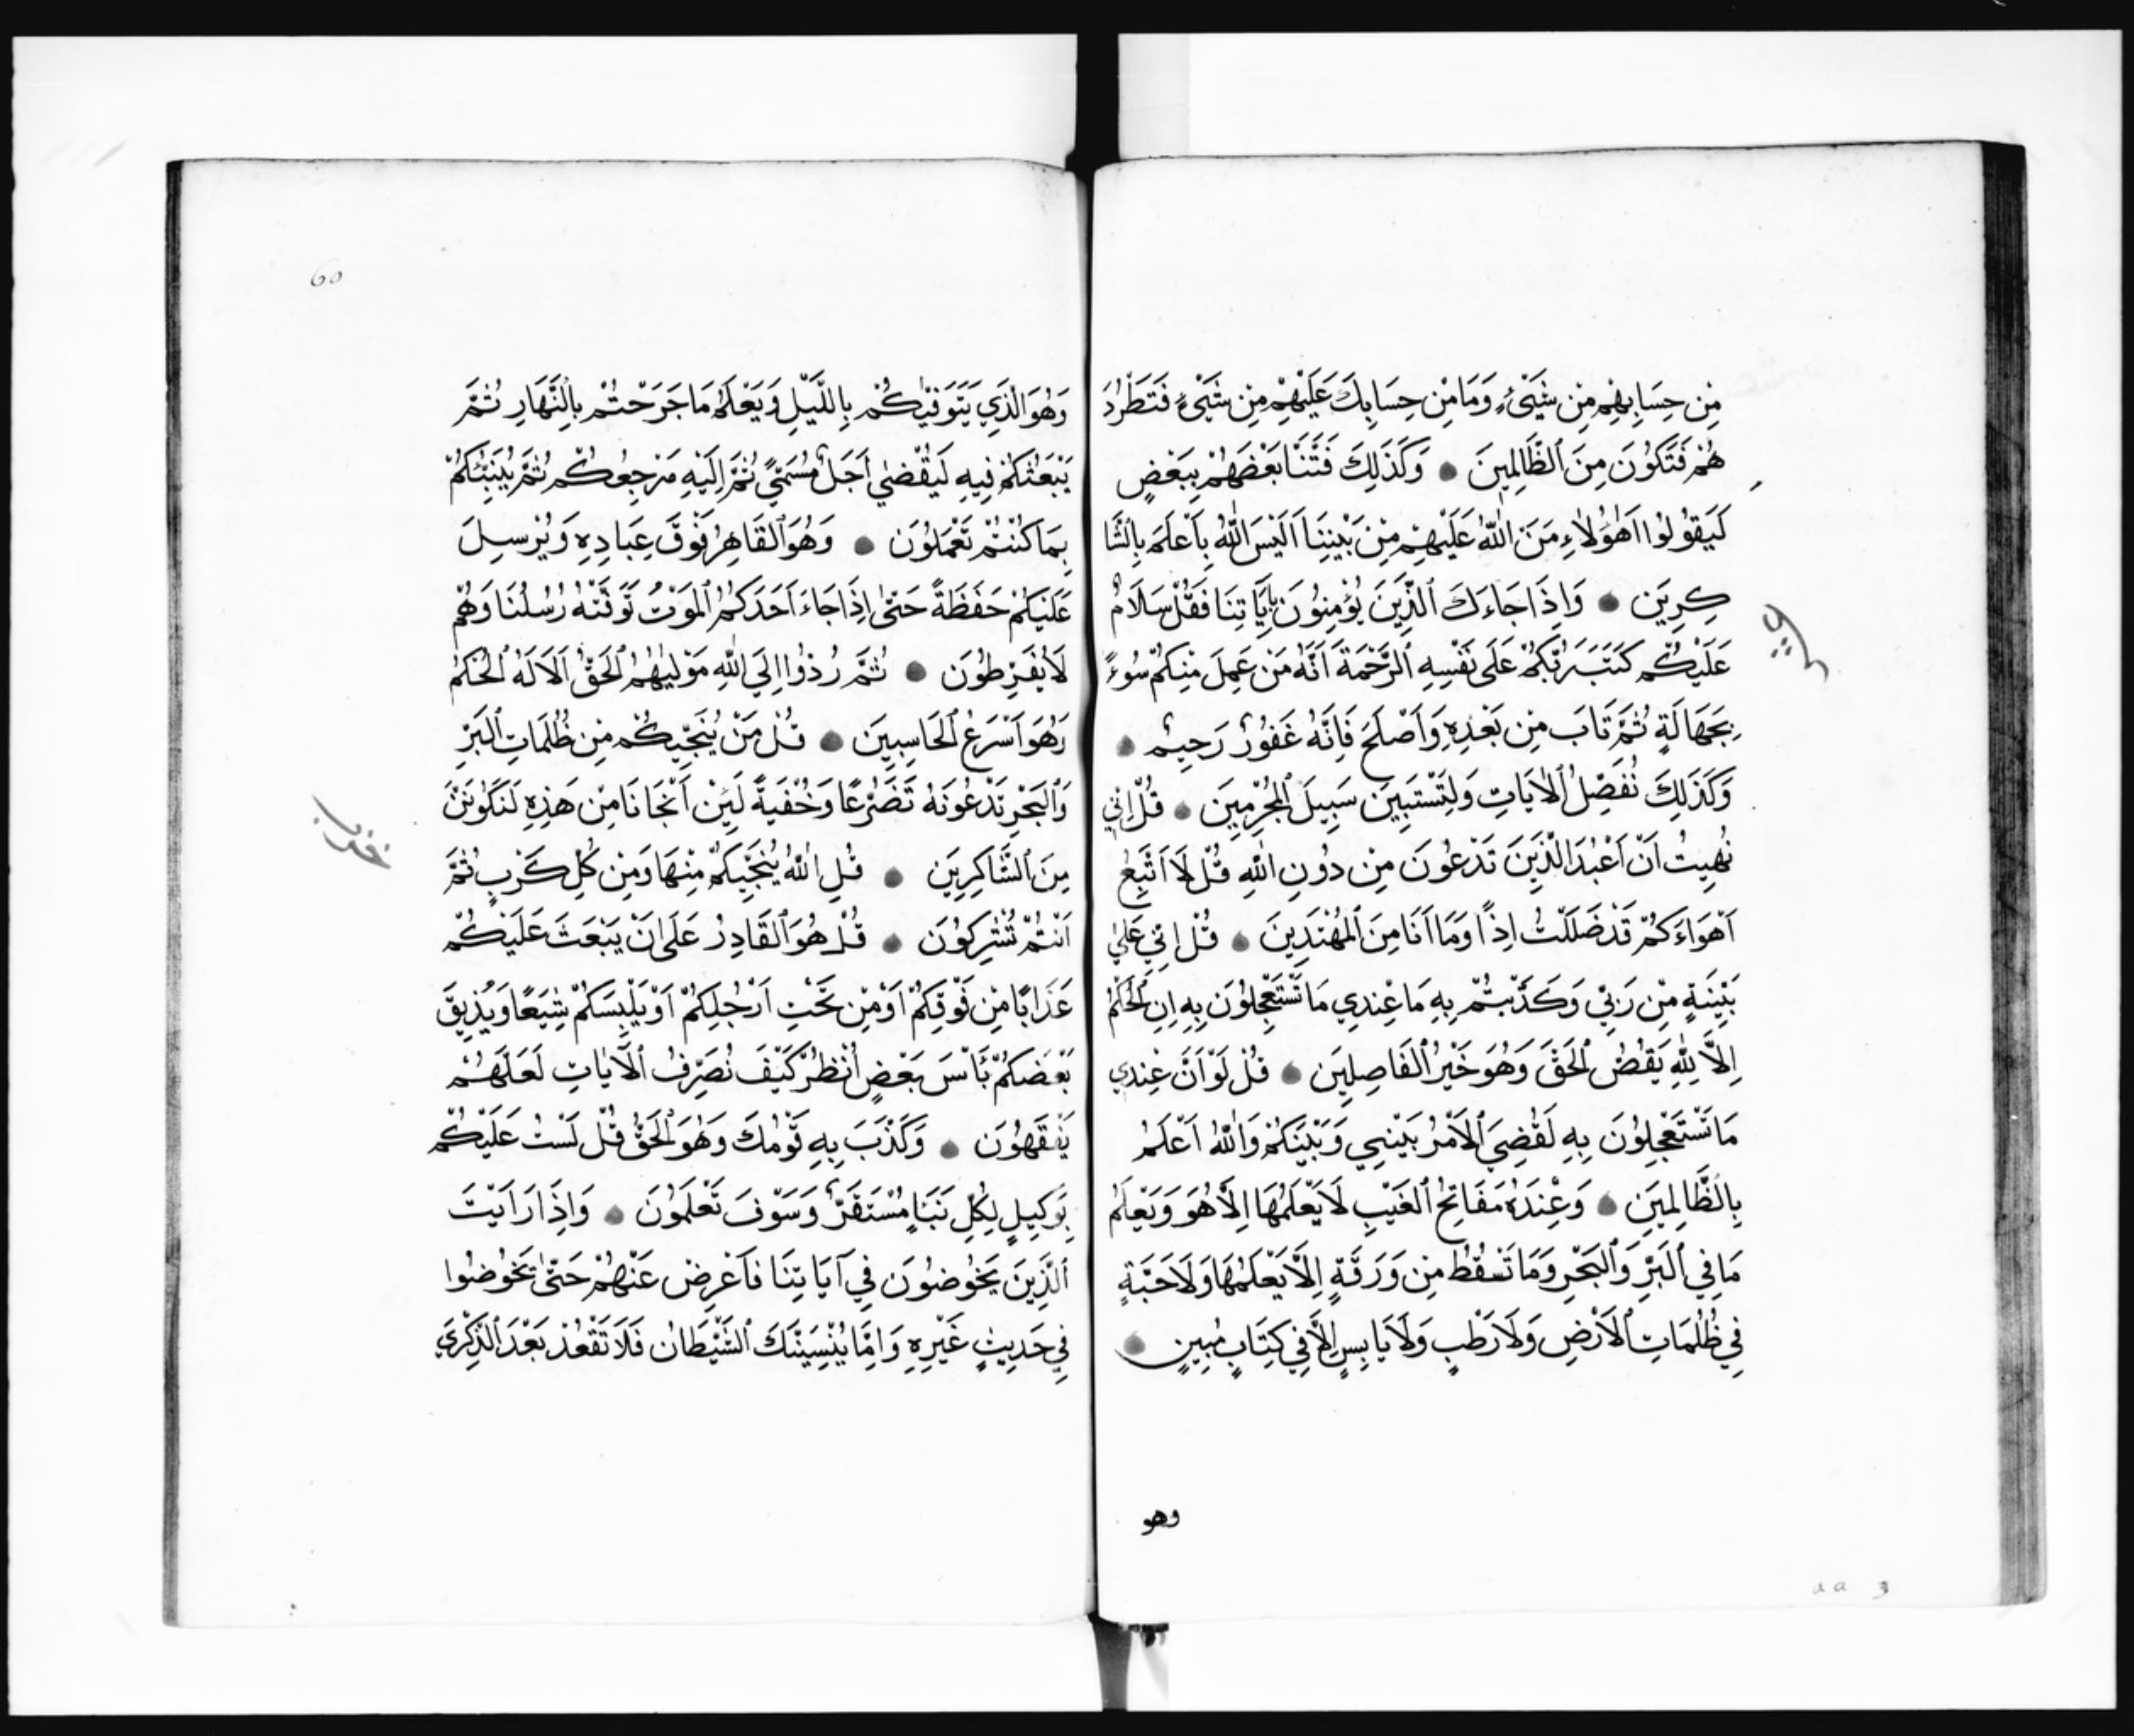 مِن حِسَابِهِمْ مِن شَيْءٍ وَمَا مِن حِسَابِكَ عَلَيْهِمْ مِن شَيْءٍ فَتَطْرُدَ
هُمْ فَتَكُونَ مِنَ ٱلظَّالِمِينَ وَكَذَلِكَ فَتَنَّا بَعْضَهُمْ بِبَعْضٍ
لَيَقُولُوا اَهَؤُلَاءِ مَنَّ اللّٰهُ عَلَيْهِمْ مِنْ بَيْنِنَا اَلَيْسَ اللّٰهُ بِأَعْلَمَ بِالشَّا
كِرِينَ وَاِذَا جَاءَكَ ٱلَّذِينَ يُؤْمِنُونَ بِآيَاتِنَا فَقُلْ سَلَامٌ
عَلَيْكُمْ كَتَبَ رَبُّكُمْ عَلَى نَفْسِهِ ٱلرَّحْمَةَ اَنَّهُ مَنْ عَمِلَ مِنْكُمْ سُوءً
بِجَهَالَةٍ ثُمَّ تَابَ مِن بَعْدِهِ وَاَصْلَحَ فَاِنَّهُ غَفُورٌ رَحِيمٌ
وَكَذَلِكَ نُفَصِّلُ ٱلْآيَاتِ وَلِتَسْتَبِينَ سَبِيلَ ٱلْمُجْرِمِينَ قُلْ اِنِّي
نُهِيتُ اَنْ اَعْبُدَ الَّذِينَ تَدْعُونَ مِنْ دُونِ اللّٰهِ قُلْ لَا اَتَّبِعُ
اَهْوَاءَكُمْ قَدْ ضَلَلْتُ اِذًا وَمَا اَنَا مِنَ ٱلْمُهْتَدِينَ قُلْ اِنِّي عَلَىٰ
بَيِّنَةٍ مِنْ رَبِّي وَكَذَّبْتُمْ بِهِ مَا عِنْدِي مَا تَسْتَعْجِلُونَ بِهِ اِنِ ٱلْحُكْمُ
اِلَّا لِلّٰهِ يَقُصُّ ٱلْحَقَّ وَهُوَ خَيْرُ ٱلْفَاصِلِينَ قُلْ لَوْ اَنَّ عِنْدِي
مَا تَسْتَعْجِلُونَ بِهِ لَقُضِيَ ٱلْاَمْرُ بَيْنِي وَبَيْنَكُمْ وَاللّٰهُ اَعْلَمُ
بِالظَّالِمِينَ وَعِنْدَهُ مَفَاتِحُ ٱلْغَيْبِ لَا يَعْلَمُهَا اِلَّا هُوَ وَيَعْلَمُ
مَا فِي ٱلْبَرِّ وَٱلْبَحْرِ وَمَا تَسْقُطُ مِن وَرَقَةٍ اِلَّا يَعْلَمُهَا وَلَا حَبَّةٍ
فِي ظُلُمَاتِ ٱلْاَرْضِ وَلَا رَطْبٍ وَلَا يَابِسٍ اِلَّا فِي كِتَابٍ مُبِينٍ
وهو
60
وَهُوَ الَّذِي يَتَوَفّٰيكُمْ بِاللَّيْلِ وَيَعْلَمُ مَا جَرَحْتُم بِالنَّهَارِ ثُمَّ
يَبْعَثُكُمْ فِيهِ لَيُقْضٰي اَجَلٌ مُسَمًّي ثُمَّ اِلَيْهِ مَرْجِعُكُمْ ثُمَّ يُنَبِّئُكُمْ
بِمَا كُنْتُمْ تَعْمَلُونَ وَهُوَ ٱلْقَاهِرُ فَوْقَ عِبَادِهِ وَيُرْسِلَ
عَلَيْكُمْ حَفَظَةً حَتّٰى اِذَا جَاءَ اَحَدَكُمُ ٱلْمَوْتُ تَوَفَّتْهُ رُسُلُنَا وَهُمْ
لَا يُفَرِّطُونَ ثُمَّ رُدُّوا اِلَي اللّٰهِ مَوْلٰيهُمُ ٱلْحَقُّ اَلَا لَهُ ٱلْحُكْمُ
وَهُوَ اَسْرَعُ ٱلْحَاسِبِينَ قُلْ مَنْ يُنَجِّيكُمْ مِن ظُلُمَاتِ ٱلْبَرِّ
وَٱلْبَحْرِ تَدْعُونَهُ تَضَرُّعًا وَخُفْيَةً لَئِنْ اَنْجَانَا مِنْ هَذِهِ لَنَكُونَنَّ
مِنَ ٱلشَّاكِرِينَ قُلِ اللّٰهُ يُنَجِّيكُمْ مِنْهَا وَمِنْ كُلِّ كَرْبٍ ثُمَّ
اَنْتُمْ تُشْرِكُونَ قُلْ هُوَ ٱلْقَادِرُ عَلَى اَنْ يَبْعَثَ عَلَيْكُمْ
عَذَابًا مِنْ فَوْقِكُمْ اَوْ مِن تَحْتِ اَرْجُلِكُمْ اَوْ يَلْبِسَكُمْ شِيَعًا وَيُذِيقَ
بَعْضَكُمْ بَأْسَ بَعْضٍ اُنْظُرْ كَيْفَ نُصَرِّفُ ٱلْآيَاتِ لَعَلَّهُمْ
يَفْقَهُونَ وَكَذَّبَ بِهِ قَوْمُكَ وَهُوَ ٱلْحَقُّ قُلْ لَسْتُ عَلَيْكُمْ
بِوَكِيلٍ لِكُلِّ نَبَاٍ مُسْتَقَرٌّ وَسَوْفَ تَعْلَمُونَ وَاِذَا رَاَيْتَ
ٱلَّذِينَ يَخُوضُونَ فِي آيَاتِنَا فَاَعْرِضْ عَنْهُمْ حَتّٰى يَخُوضُوا
فِي حَدِيثٍ غَيْرِهِ وَاِمَّا يُنْسِيَنَّكَ ٱلشَّيْطَانُ فَلَا تَقْعُدْ بَعْدَ ٱلذِّكْرَي